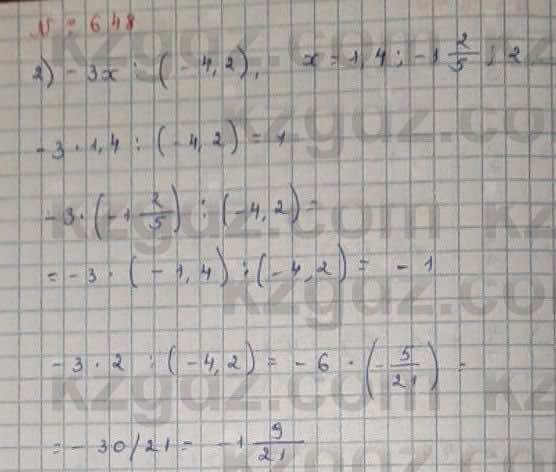 № 648
2) -3x : (-4,2), x = 1,4 ; -1 2/5 ; 2
-3 · 1,4 : (-4,2) = 1
-3 · (-1 2/5) : (-4,2) =
= -3 · (-1,4) : (-4,2) = -1
-3 · 2 : (-4,2) = -6 · (-5/21) =
= -30/21 = -1 9/21
kzgdz.com